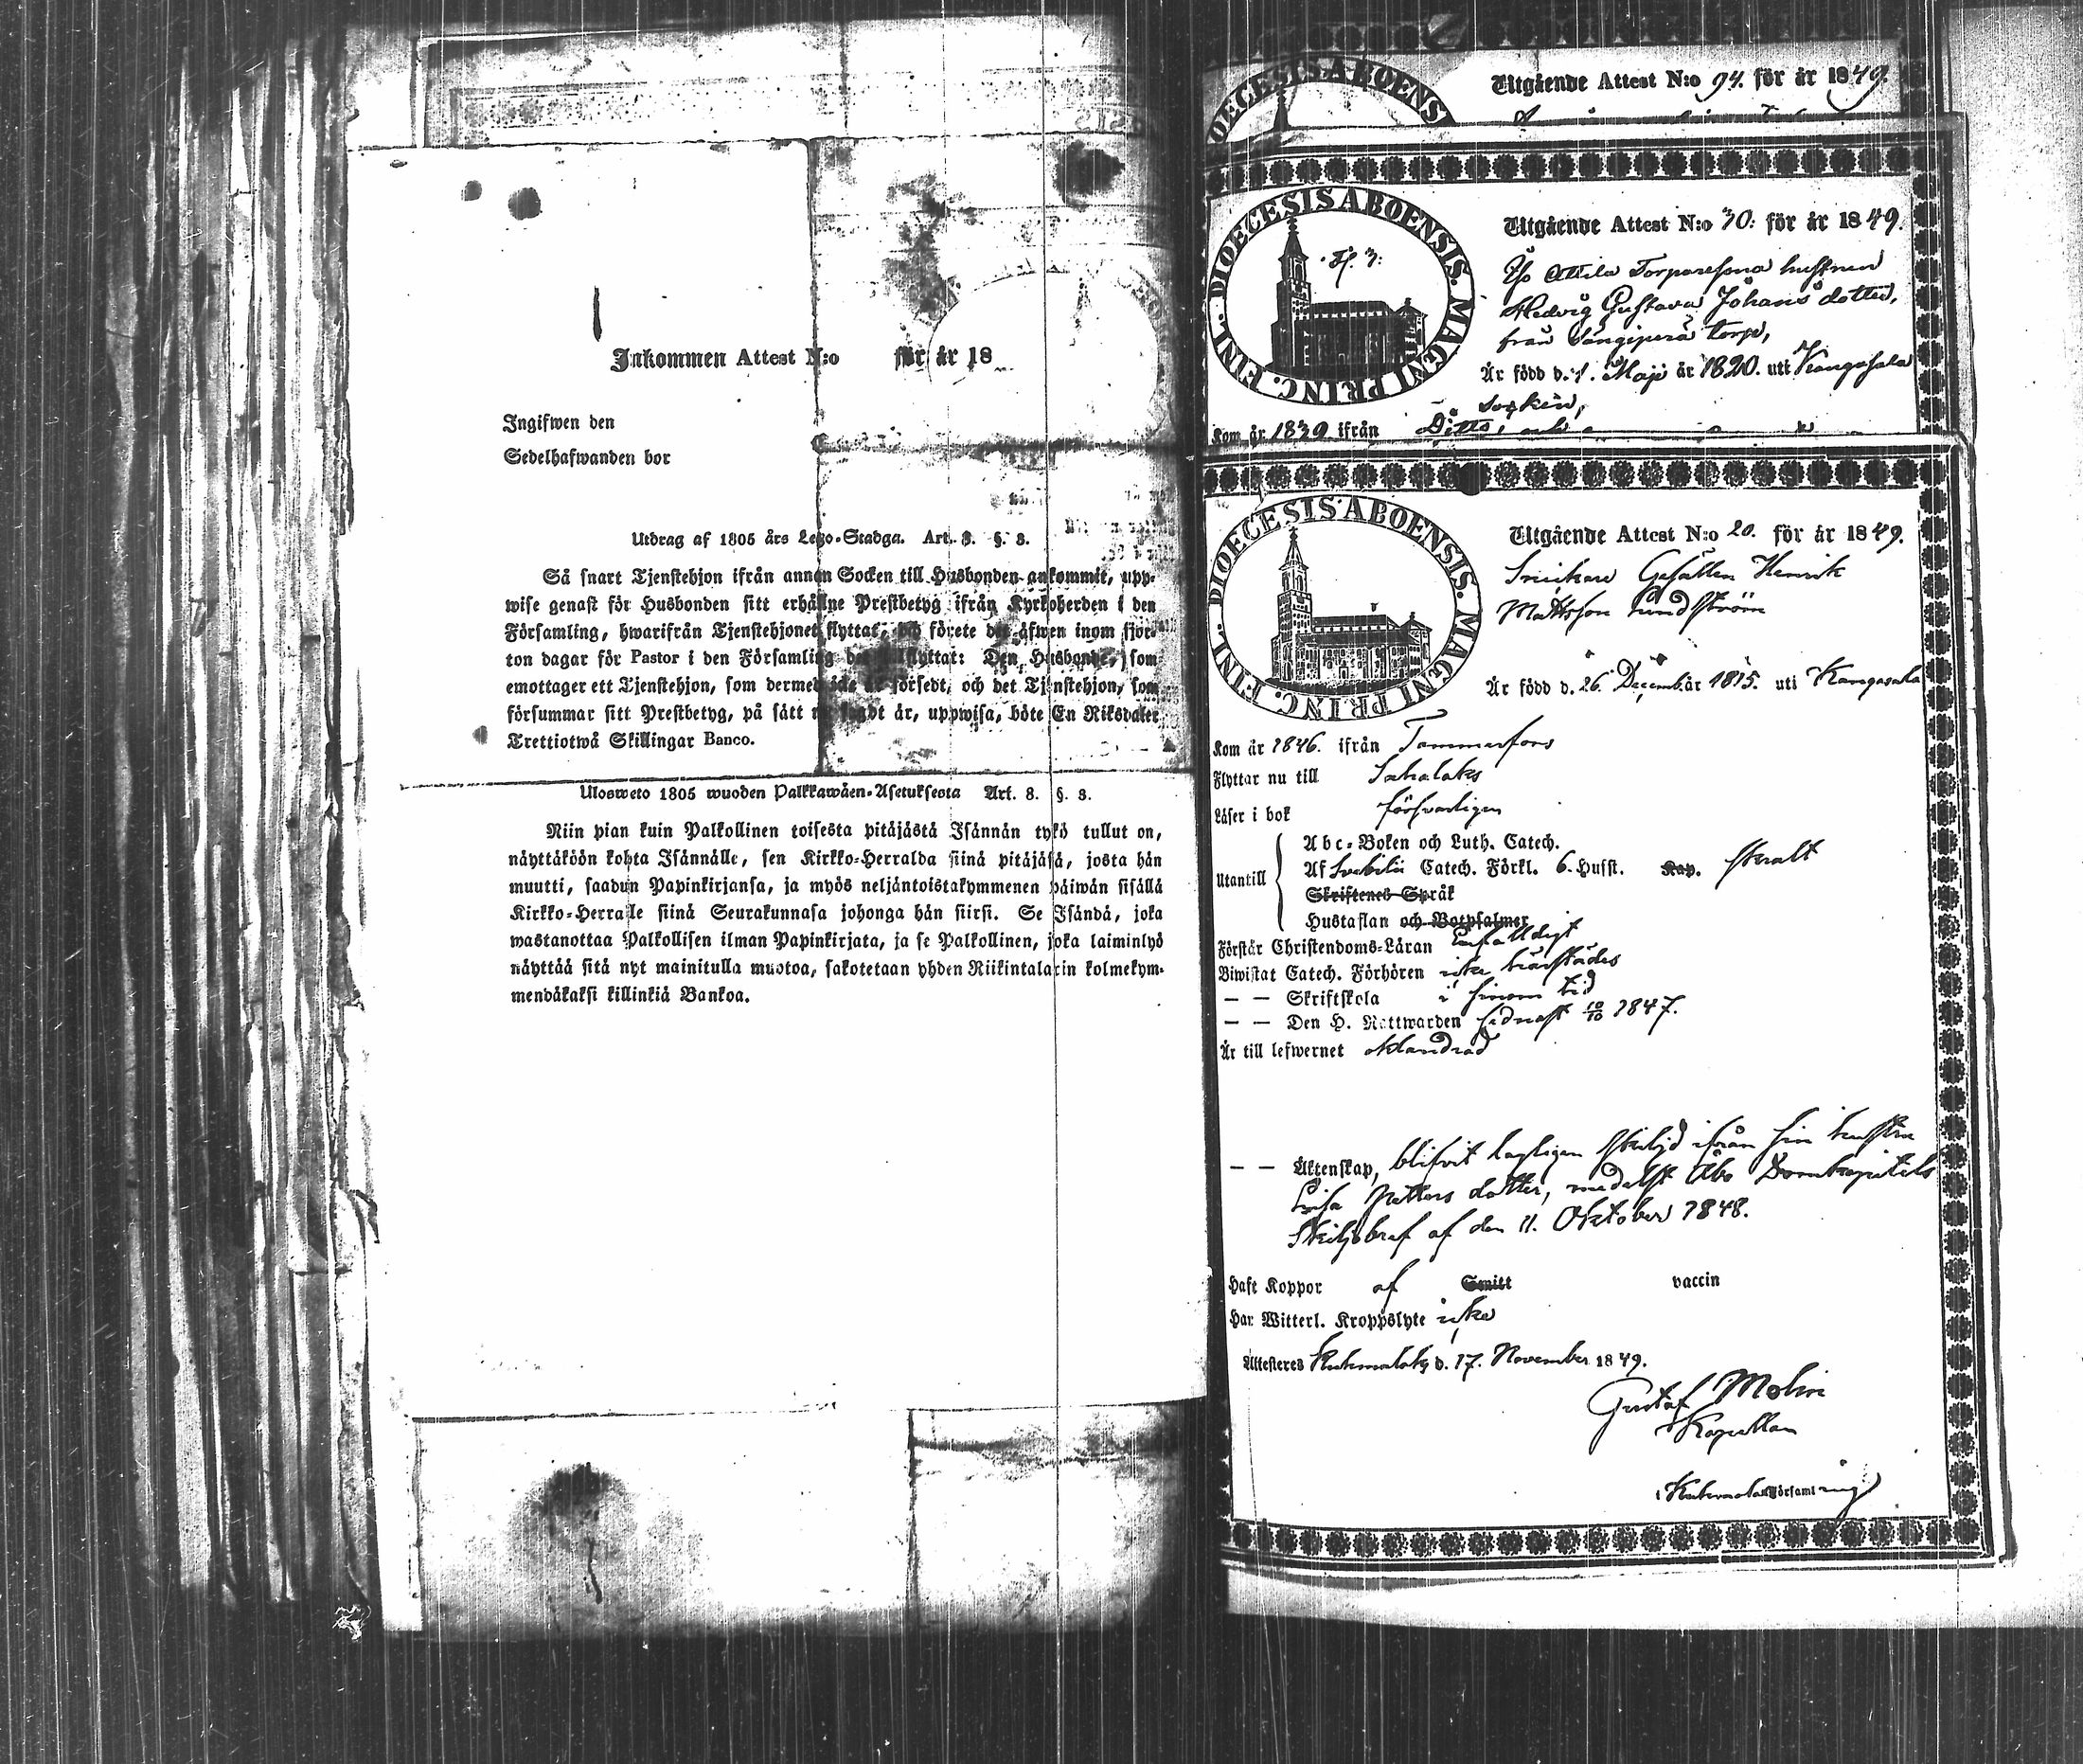 Inkommen Attest N:o för år 18
Ingifwen den
Sedelhafwanden bor
Utdrag af 1805 års Lego-Stadga. Art. 8. §. 8.
Så snart Tjenstehjon ifrån annan Socken till Husbonden ankommit, upp-
wise genast för Husbonden sitt erhållne Prestbetyg ifrån Kyrkoherden i den
Församling, hwarifrån Tjenstehjonet flyttat, och förete det äfwen inom fjor-
ton dagar för Pastor i den Församling flyttat: Den Husbonde, som
emottager ett Tjenstehjon, som dermed icke är försedt, och det Tjenstehjon, som
försummar sitt Prestbetyg, på sätt nu sagdt är, uppwisa, böte En Riksdaler
Trettiotwå Skillingar Banco.
Ulosweto 1805 wuoden Palkkawäen-Asetuksesta Art. 8. §. 8.
Niin pian kuin Palkollinen toisesta pitäjästä Isännän tykö tullut on,
näyttäköön kohta Isännälle, sen Kirkko-Herralda siinä pitäjäsä, josta hän
muutti, saadun Papinkirjansa, ja myös neljäntoistakymmenen päiwän sisällä
Kirkko-Herralle siinä Seurakunnasa johonga hän siirsi. Se Isändä, joka
wastanottaa Palkollisen ilman Papinkirjata, ja se Palkollinen, joka laiminlyö
näyttää sitä nyt mainitulla muotoa, sakotetaan yhden Riikintalarin kolmekym-
mendäkaksi killinkiä Bankoa.
Utgående Attest N:o 94. för år 1849.
DIOECESIS ABOENSIS. MAGNI PRINC. FINL.
Utgående Attest N:o 30. för år 1849.
Torparesona hustrun
Hedvig Gustava Johans dotter,
från torp,
Är född d. 1. Maji år 1820. uti Kangasala
socken,
Kom år 1839 ifrån Ditto,
DIOECESIS ABOENSIS. MAGNI PRINC. FINL.
Utgående Attest N:o 20. för år 1849.
Snickare Gesällen Henrik
Mattsson Lundström
Är född d. 26. Decemb. år 1815. uti Kangasala
Kom år 1846. ifrån Tammerfors
Flyttar nu till Sahalaks
Läser i bok försvarligen
Utantill
Abc-Boken och Luth. Catech.
Af Svebilii Catech. Förkl. 6. Hufst. Kap. skralt
Skriftenes Språk
Hustaflan och Botpsalmer
Förstår Christendoms-Läran Enfaldigt
Biwistat Catech. Förhören icke härstädes
— — Skriftskola i sinom tid
— — Den H. Nattwarden sednast 10/10 1847.
Är till lefwernet oklandrad
— — Äktenskap, blifvit lagligen skiljd ifrån sin hustru
Lisa Petters dotter, medelst Åbo Domkapitels
Skiljobref af den 11. Oktober 1848.
Haft Koppor af Smitt vaccin
Har Witterl. Kroppslyte icke
Attesteres Kuhmalaks d. 17. November 1849.
Gustaf Molin
Kapellan
i Kuhmalaks Församling